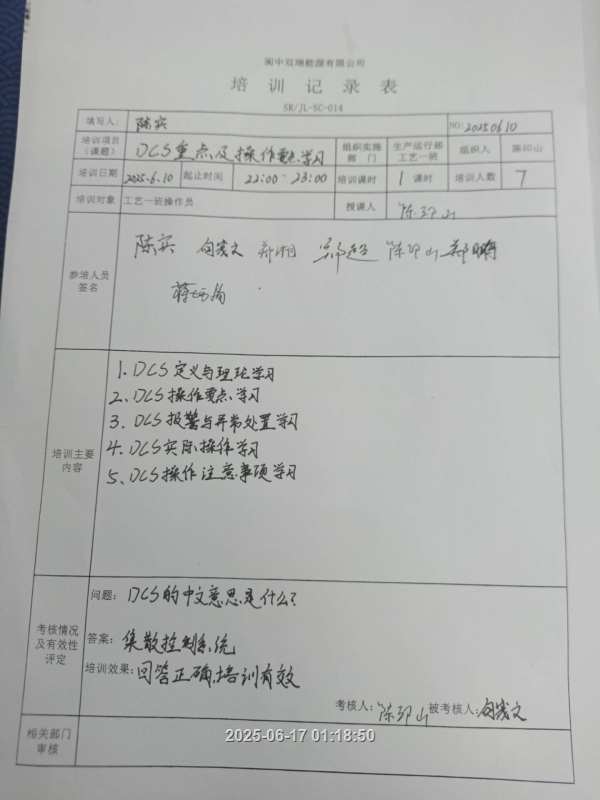 阆中双瑞能源有限公司
培训记录表
SR/JL-SC-014
填写人： 陈实 NO: 20250610
培训项目（课题） DCS重点及操作要点学习 组织实施部门 生产运行部工艺一班 组织人 陈印山
培训日期 2025.6.10 起止时间 22:00-23:00 培训课时 1课时 培训人数 7
培训对象 工艺一班操作员 授课人 陈印山
参培人员签名 陈实 郑湘 郑超 陈印山 郑鹏
培训主要内容
1. DCS定义与理论学习
2、DCS操作要点学习
3、DCS报警与异常处置学习
4、DCS实际操作学习
5、DCS操作注意事项学习
考核情况及有效性评定
问题： DCS的中文意思是什么？
答案： 集散控制系统
培训效果： 回答正确，培训有效
考核人： 陈印山 被考核人：
相关部门审核
2025-06-17 01:18:50